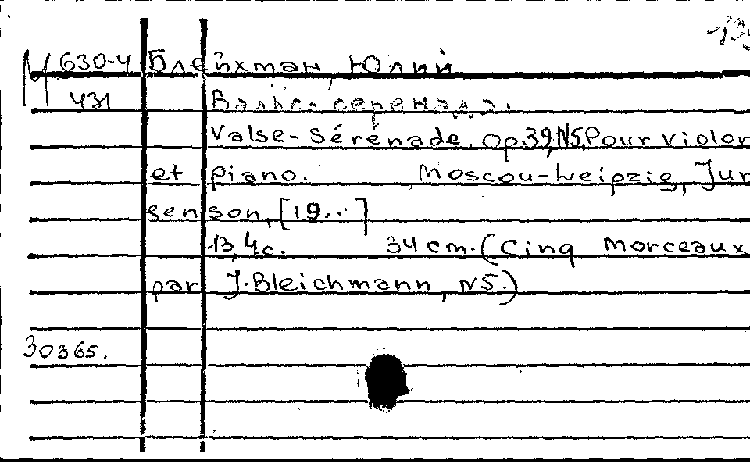 М 630-4 Блейхман, Юлий
431 Вальс-серенада.
Valse-Sérénade. Op.39, N5. Pour violon
et piano. Moscou-Leipzig, Jur
senson, [19..]
13, 4 с. 34 cm. (Cinq morceaux
par J. Bleichmann, N5.)
30365.